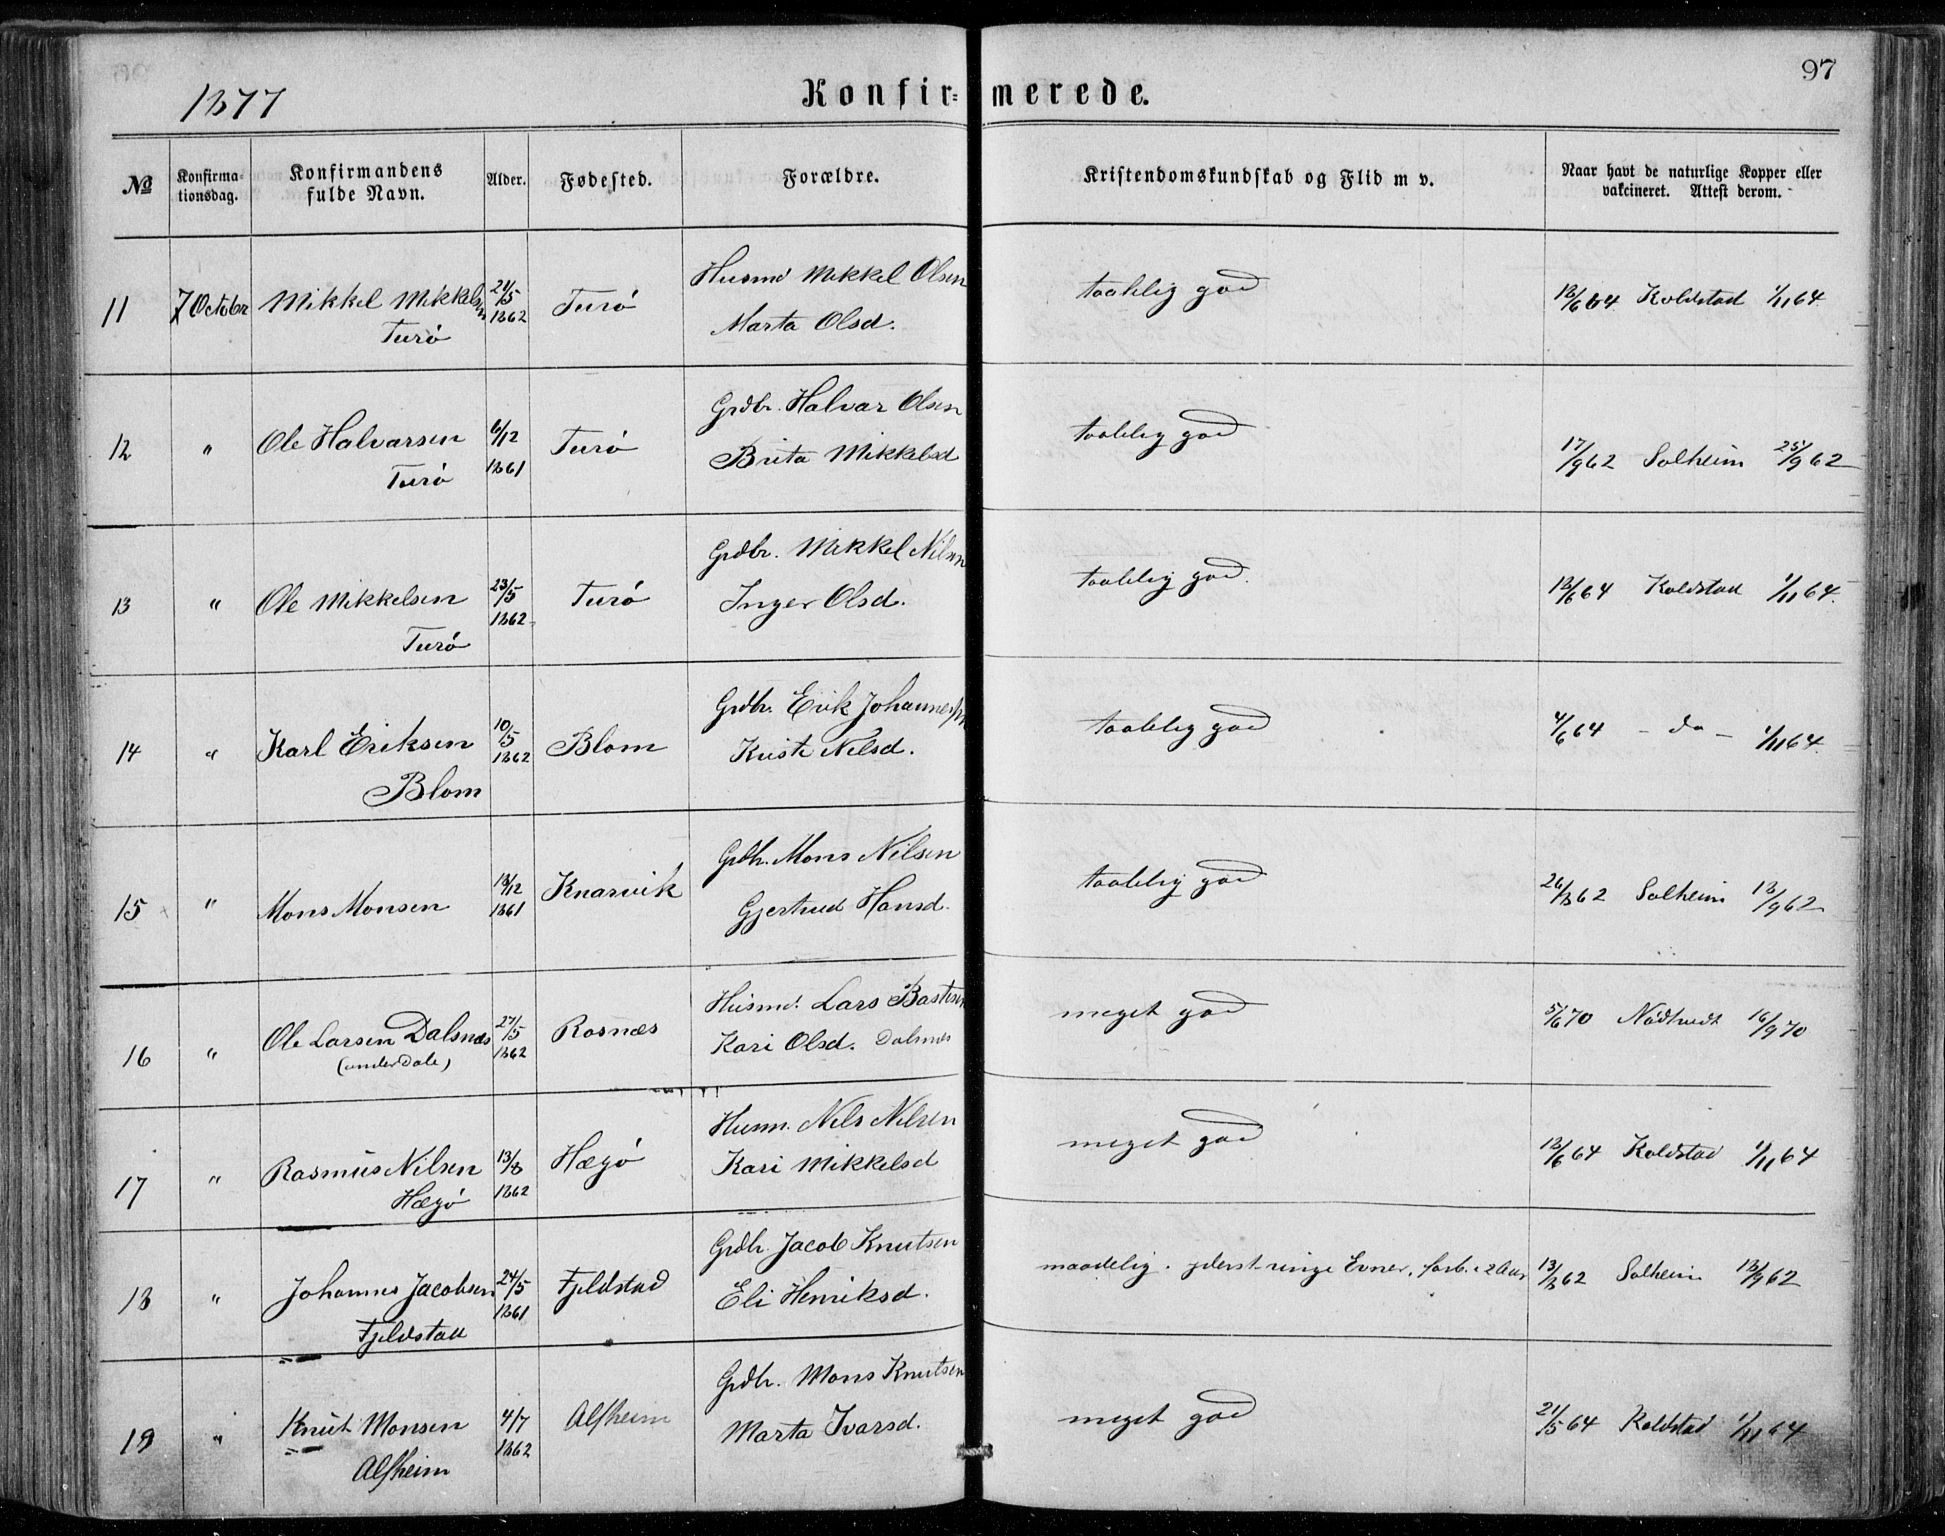 1877
Konfir=merede.
97
№
Konfirma-
tionsdag.
Konfirmandens
fulde Navn.
Alder.
Fødested.
Forældre.
Kristendomskundskab og Flid m v.
Naar havt de naturlige Kopper eller
vakcineret. Attest derom.
11 7 Octobr Mikkel Mikkelsen Turø 21/5 1862 Turø
Husmd Mikkel Olsen
Marta Olsd.
taalelig god
18/6 64 Koldstad 1/11 64
12 " Ole Halvarsen Turø 6/12 1861 Turø
Grdbr. Halvar Olsen
Brita Mikkelsd
taalelig god
17/9 62 Solheim 25/9 62
13 " Ole Mikkelsen Turø 23/5 1862 Turø
Grdbr. Mikkel Nilsen
Inger Olsd.
taalelig god.
18/6 64 Koldstad 1/11 64.
14 " Karl Eriksen Blom 10/5 1862 Blom
Grdbr. Erik Johannessen
Kristi Nilsd.
taalelig god
4/6 64 - do - 1/11 64.
15 " Mons Monsen 18/12 1861 Knarvik
Grdbr. Mons Nilsen
Gjertrud Hansd.
taalelig god
26/8 62 Solheim 18/9 62
16 " Ole Larsen Dalsnæs (under Dale) 27/5 1862 Rosnæs
Husmd. Lars Bastesen
Kari Olsd. Dalsnæs
meget god
5/6 70 Nødtvedt 16/9 70
17 " Rasmus Nilsen Hægø 13/8 1862 Hægø
Husm. Nils Nilsen
Kari Mikkelsd
meget god
18/6 64 Koldstad 1/11 64
18 " Johannes Jacobsen Fjeldstad 24/5 1861 Fjeldstad
Grdbr. Jacob Knutsen
Eli Henriksd.
maadelig. yderst ringe Evner, forb. i 2 Aar
13/8 62 Solheim 18/9 62
19 " Knut Monsen Alfheim 4/7 1862 Alfheim
Grdbr. Mons Knutsen
Marta Ivarsd.
meget god
21/5 64 Koldstad 1/11 64